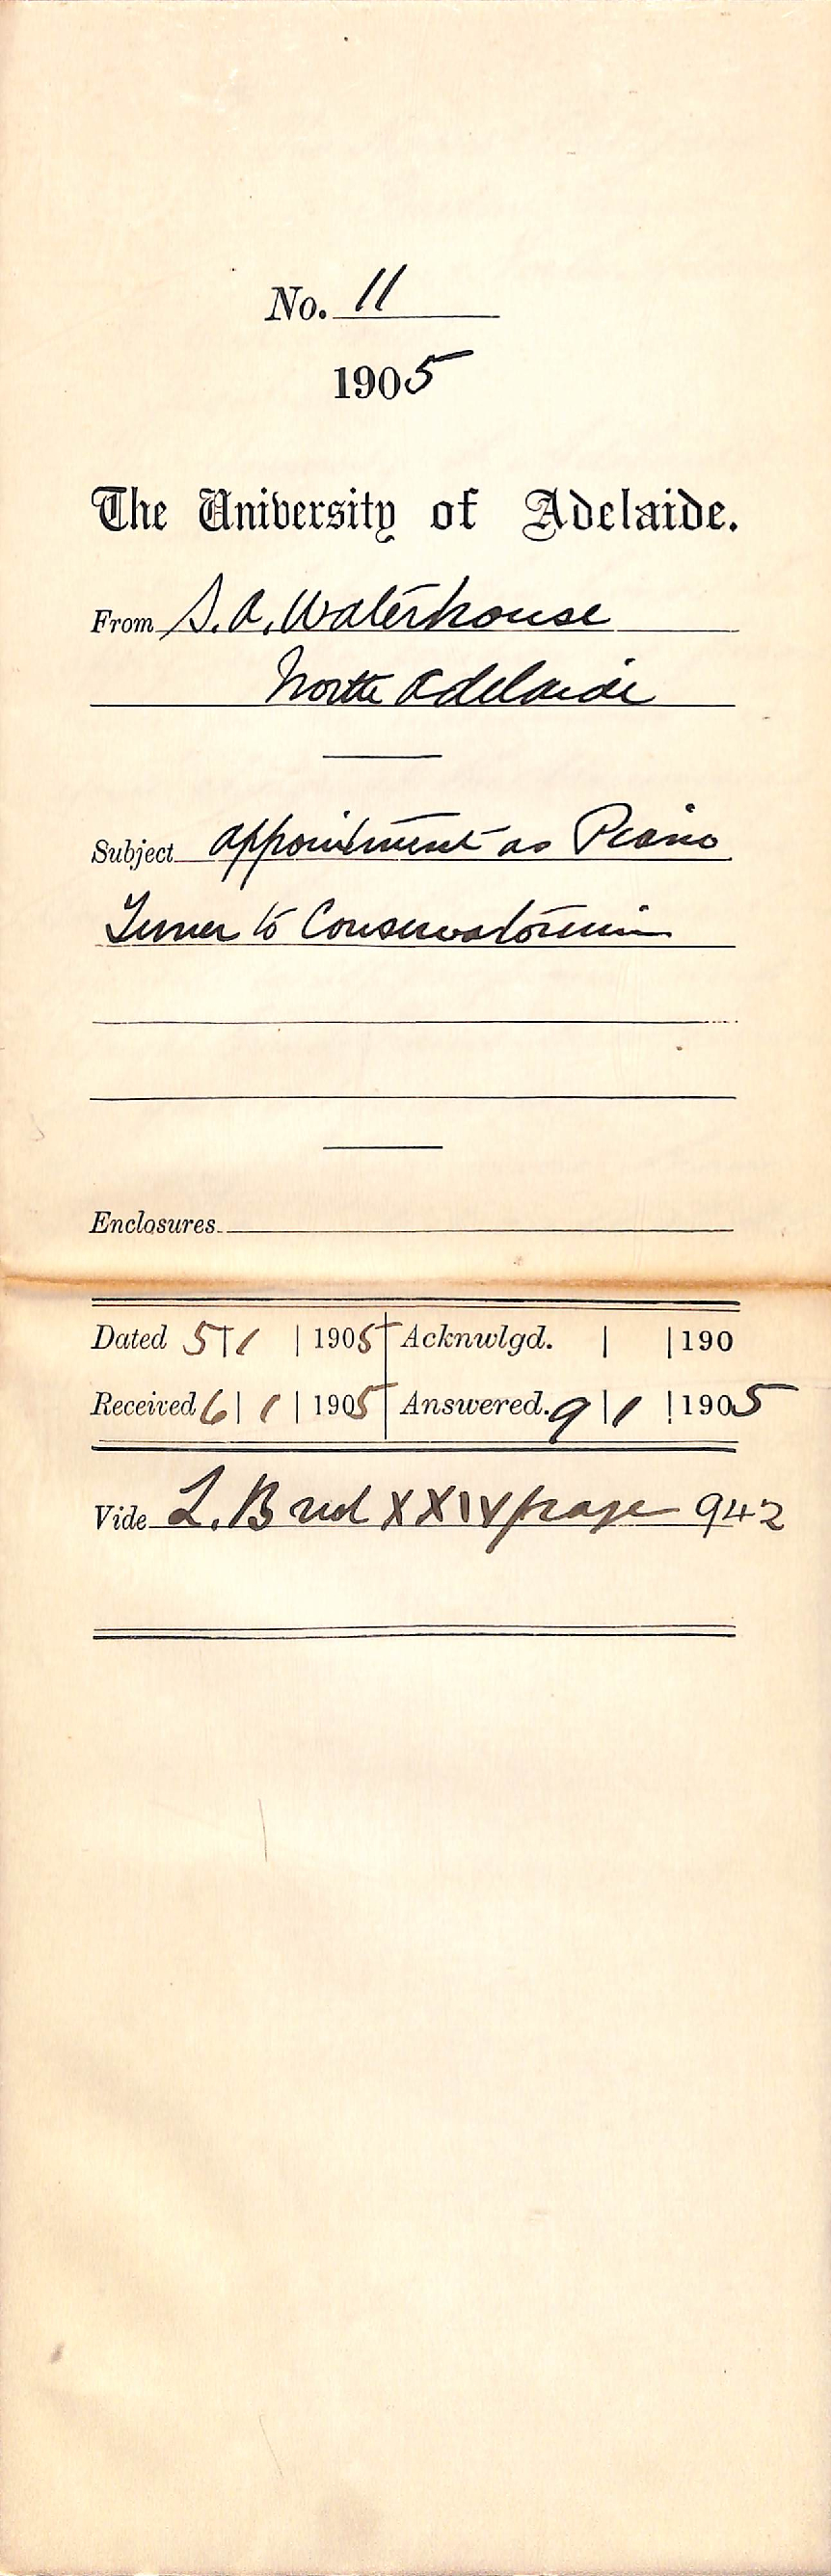 No. 11
1905
The University of Adelaide.
From S. A. Waterhouse
North Adelaide
Subject appointment as Piano
Tuner to Conservatorium
Enclosures
Dated 5|1 | 1905 Acknwlgd. | | 190
Received 6| 1 | 1905 Answered. 9 | 1 | 1905
Vide L. B vol XXIV page 942